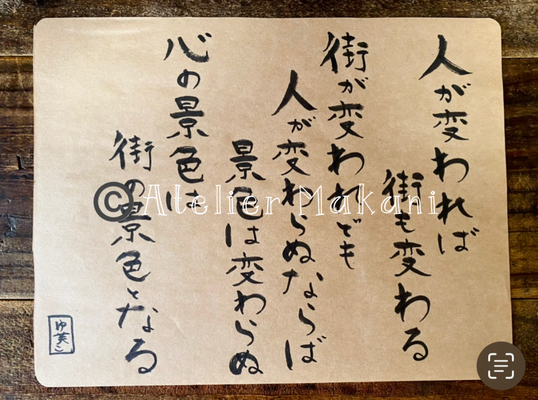 人が変われば
街も変わる
街が変われども
人が変わらぬならば
景色は変わらぬ
心の景色は
街の景色となる
© Atelier Makani